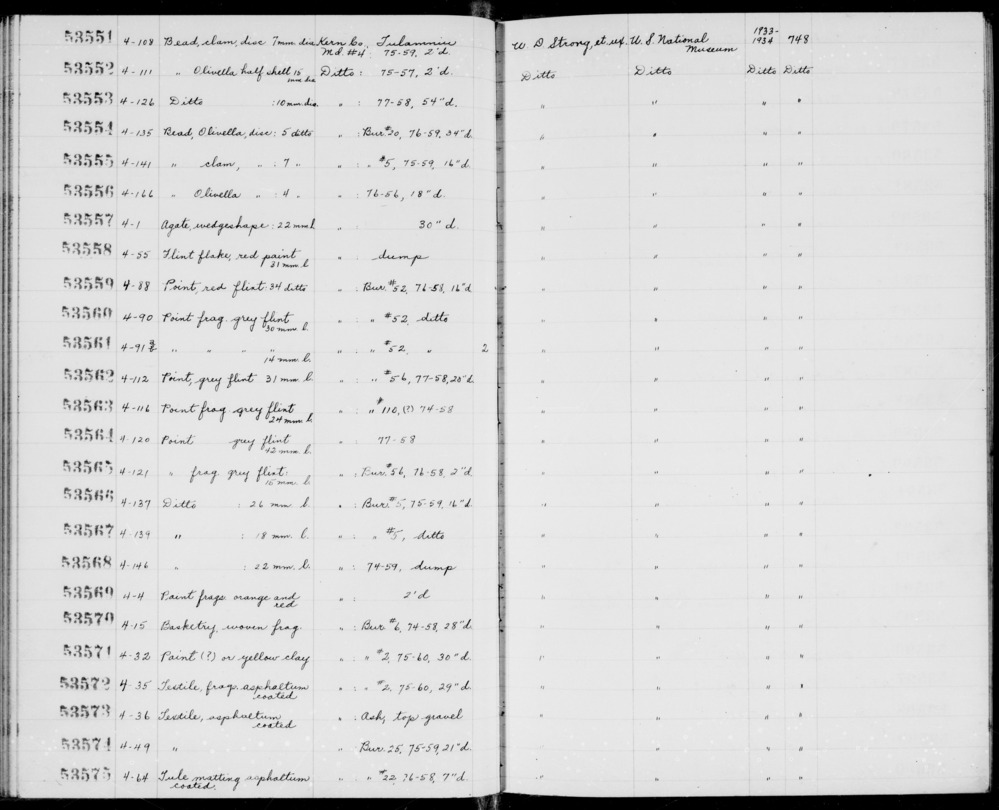 53551 4-108 Bead, clam, disc 7mm. dia. Kern Co., Tulamniu Md. #4: 75-59, 2'd. W. D. Strong, et ux. U. S. National Museum 1933-1934 748
53552 4-111 " Olivella half shell 15 mm. dia. Ditto: 75-57, 2'd. Ditto Ditto Ditto Ditto
53553 4-126 Ditto :10 mm. dia. " : 77-58, 54"d. " " " "
53554 4-135 Bead, Olivella, disc: 5 ditto " : Bur. #30, 76-59, 34"d. " " " "
53555 4-141 " clam, " : 7 " " : " #5, 75-59, 16"d. " " " "
53556 4-166 " Olivella " : 4 " " : 76-56, 18"d. " " " "
53557 4-1 Agate, wedgeshape: 22 mm l " : 30"d. " " " "
53558 4-55 Flint flake, red paint 31 mm. l. " : dump " " " "
53559 4-88 Point, red flint: 34 ditto " : Bur. #52, 76-58, 16"d " " " "
53560 4-90 Point frag. grey flint 30 mm. l. " : " #52, ditto " " " "
53561 4-91 a/b " " " " 14 mm. l. " : " #52, " 2 " " " "
53562 4-112 Point, grey flint 31 mm l. " : " #56, 77-58, 20"d. " " " "
53563 4-116 Point frag grey flint 24 mm. l. " : " #110, (?) 74-58 " " " "
53564 4-120 Point grey flint 42 mm. l. " : 77-58 " " " "
53565 4-121 " frag. grey flint: 15 mm. l. " : Bur. #56, 76-58, 2"d. " " " "
53566 4-137 Ditto : 26 mm. l. " : Bur. #5, 75-59, 16"d. " " " "
53567 4-139 " : 18 mm. l. " : " #5, ditto " " " "
53568 4-146 " : 22 mm. l. " : 74-59, dump " " " "
53569 4-4 Paint frags. orange and red " : 2'd " " " "
53570 4-15 Basketry, woven frag. " : Bur. #6, 74-58, 28"d. " " " "
53571 4-32 Paint (?) or yellow clay " : " #2, 75-60, 30"d. " " " "
53572 4-35 Textile, frag. asphaltum coated " : " #2, 75-60, 29"d. " " " "
53573 4-36 Textile, asphaltum coated " : Ash, top gravel " " " "
53574 4-49 " " Bur. 25, 75-59, 21"d. " " " "
53575 4-64 Tule matting asphaltum coated. " : " #22, 76-58, 7"d. " " " "